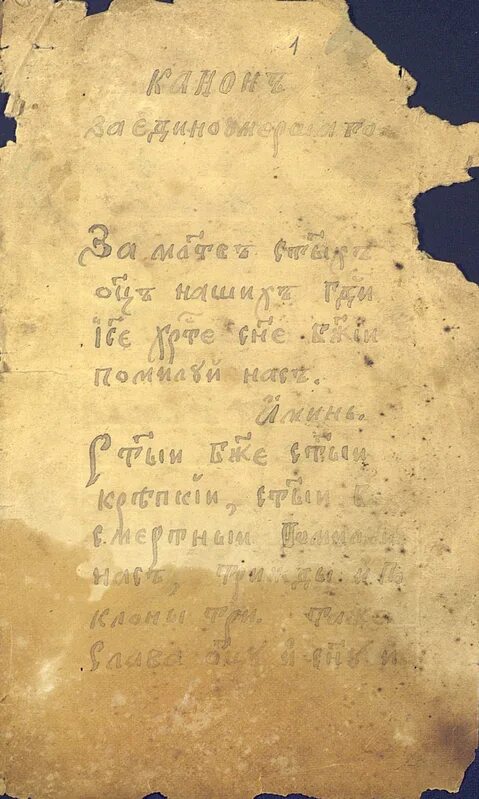 1
КАНОНЪ
За единоумершаго
За млтвъ стыхъ
оцъ нашихъ Гди
Ісе Хрте сне Бжіи
помилуй насъ.
Аминь.
Стыи Бже стыи
крѣпкіи, стыи Бе
смертныи Помилуи
насъ, трижды и п
клоны три. таже
Слава оцу и сну и